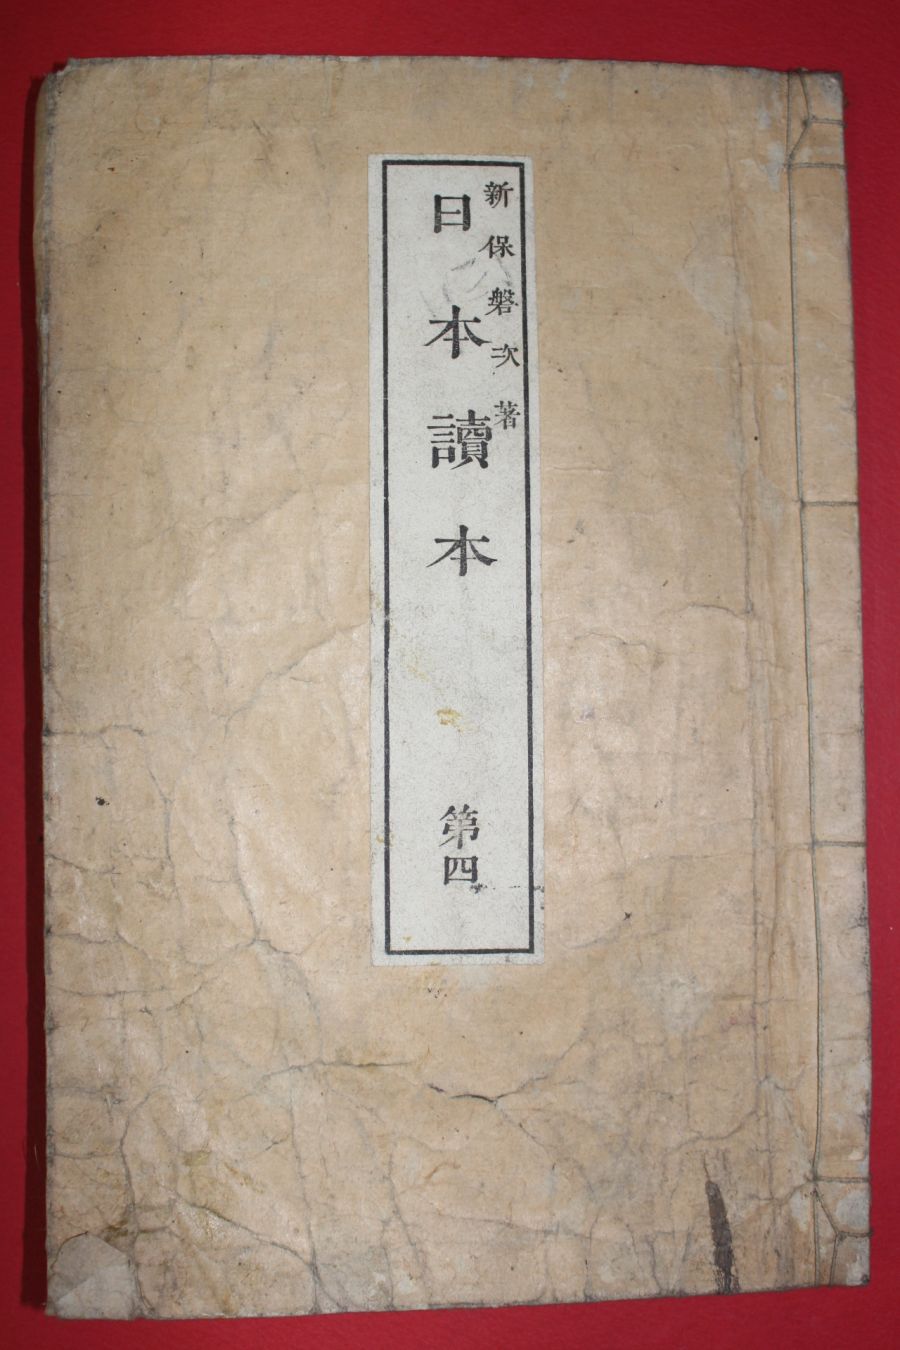 新保磐次著
日本讀本
第四